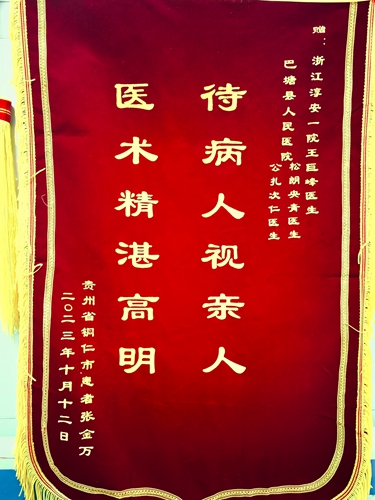 赠：浙江淳安一院王巨峰医生
巴塘县人民医院松朗央青医生
公扎次仁医生
待病人视亲人
医术精湛高明
贵州省铜仁市患者张金万
二〇二三年十月十二日